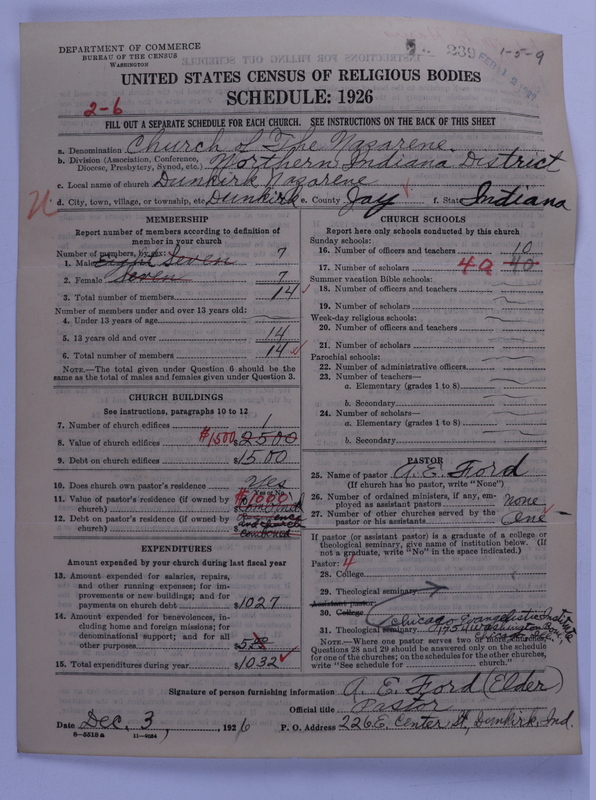 DEPARTMENT OF COMMERCE
BUREAU OF THE CENSUS
WASHINGTON
239
1-5-9
UNITED STATES CENSUS OF RELIGIOUS BODIES
SCHEDULE: 1926
2-6
FILL OUT A SEPARATE SCHEDULE FOR EACH CHURCH. SEE INSTRUCTIONS ON THE BACK OF THIS SHEET
a. Denomination Church of The Nazarene.
b. Division (Association, Conference, Diocese, Presbytery, Synod, etc.) Northern Indiana District
c. Local name of church Dunkirk Nazarene
d. City, town, village, or township, etc. Dunkirk e. County Jay f. State Indiana
MEMBERSHIP
Report number of members according to definition of
member in your church
Number of members, by sex:
1. Male Eight Seven 7
2. Female Seven 7
3. Total number of members 14
Number of members under and over 13 years old:
4. Under 13 years of age
5. 13 years old and over 14
6. Total number of members 14
NOTE.—The total given under Question 6 should be
same as the total of males and females given under Question 3.
CHURCH BUILDINGS
See instructions, paragraphs 10 to 12
7. Number of church edifices 1
8. Value of church edifices $1500 $2500
9. Debt on church edifices $1500
10. Does church own pastor's residence? Yes
11. Value of pastor's residence (if owned by
church) $1000 Combined
12. Debt on pastor's residence (if owned by
church) $ and church combined
EXPENDITURES
Amount expended by your church during last fiscal year
13. Amount expended for salaries, repairs,
and other running expenses; for im-
provements or new buildings; and for
payments on church debt $1027
14. Amount expended for benevolences, in-
cluding home and foreign missions; for
denominational support; and for all
other purposes $
15. Total expenditures during year $1032
CHURCH SCHOOLS
Report here only schools conducted by this church
Sunday schools:
16. Number of officers and teachers 10
17. Number of scholars 40 40
Summer vacation Bible schools:
18. Number of officers and teachers
19. Number of scholars
Week-day religious schools:
20. Number of officers and teachers
21. Number of scholars
Parochial schools:
22. Number of administrative officers
23. Number of teachers—
a. Elementary (grades 1 to 8)
b. Secondary
24. Number of scholars—
a. Elementary (grades 1 to 8)
b. Secondary
PASTOR
25. Name of pastor A. E. Ford
(If church has no pastor, write "None")
26. Number of ordained ministers, if any, em-
ployed as assistant pastors None
27. Number of other churches served by the
pastor or his assistants One
If pastor (or assistant pastor) is a graduate of a college or
theological seminary, give name of institution below. (If
not a graduate, write "No" in the space indicated.)
Pastor: 4
28. College
29. Theological seminary
Assistant pastor
30. College Chicago Evangelistic Institute
31. Theological seminary 1754 Washington Boul,
Chicago Ill.
NOTE.—Where one pastor serves two or more churches,
Questions 28 and 29 should be answered only on the schedule
for one of the churches; on the schedules for the other churches,
write "See schedule for church."
Signature of person furnishing information A. E. Ford (Elder)
Official title Pastor
Date Dec. 3, 1926 P. O. Address 226 E. Center St, Dunkirk, Ind.
8-5518a 11-9584